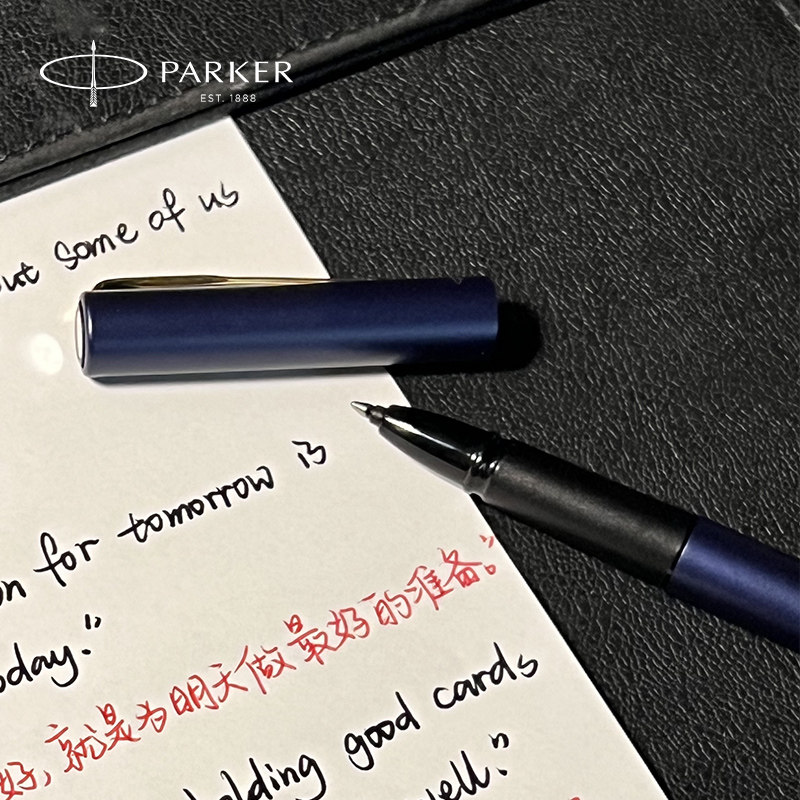 PARKER
EST. 1888
some of us
for tomorrow is
today."
好,就是为明天做最好的准备。"
holding good cards
well."